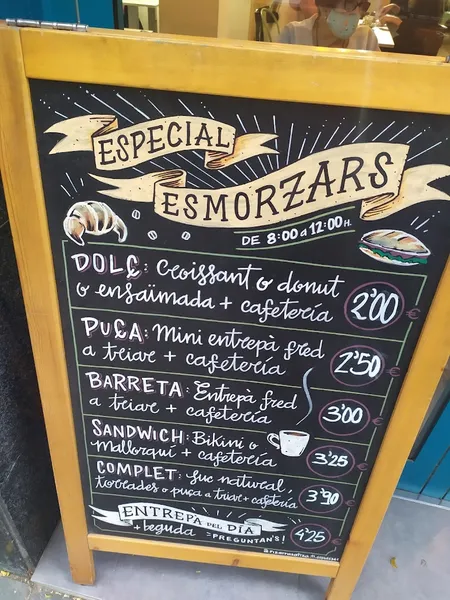 ESPECIAL
ESMORZARS
DE 8:00 a 12:00 H.
DOLÇ: Croissant o donut
o ensaïmada + cafetería 2'00 €
PUÇA: Mini entrepà fred
a triar + cafetería 2'50 €
BARRETA: Entrepà fred
a triar + cafetería 3'00 €
SANDWICH: Bikini o
mallorquí + cafetería 3'25 €
COMPLET: Suc natural,
torrades o puça a triar + cafetería 3'90 €
ENTREPA DEL DIA
+ beguda =PREGUNTAN'S! 4'25 €